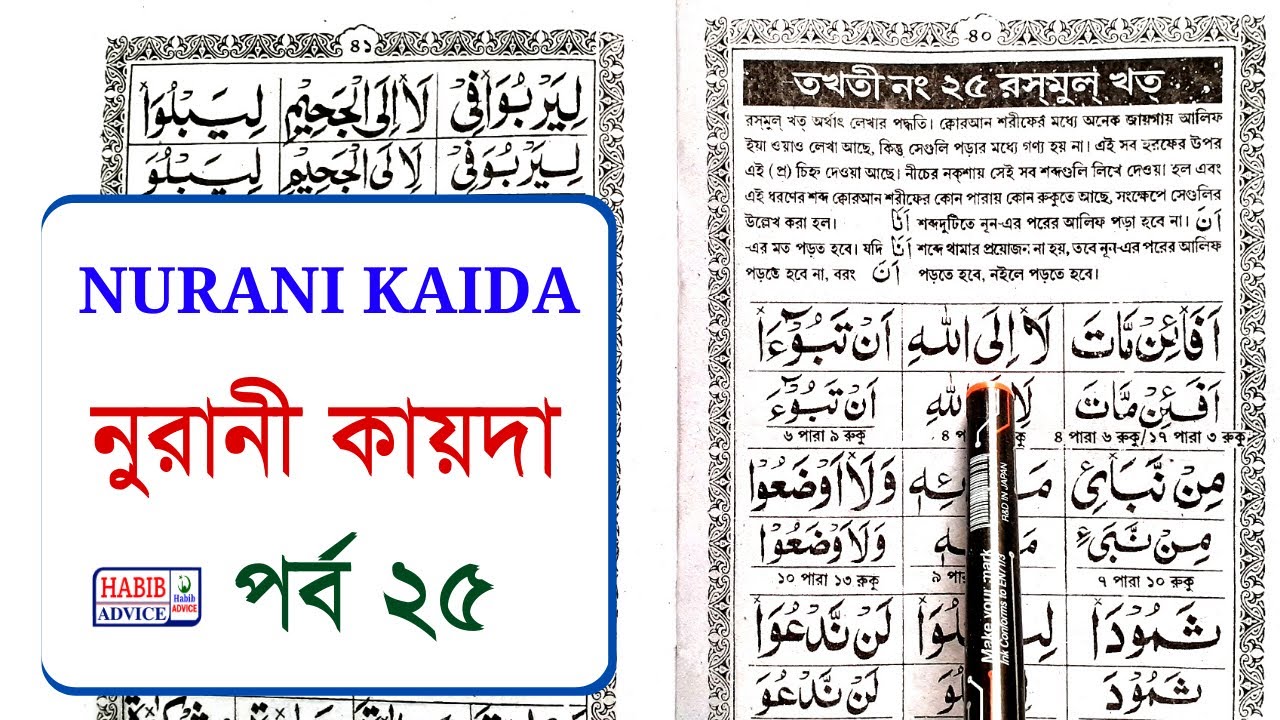 ৪১
لِيَرْبُوَا۟فِيْ لَا۟اِلَى الْجَحِيْمِ لِيَبْلُوَا۟
لِيَرْبُوَفِيْ لَاِلَى الْجَحِيْمِ لِيَبْلُوَ
NURANI KAIDA
নুরানী কায়দা
পর্ব ২৫
HABIB
ADVICE
Habib
ADVICE
৪০
তখতী নং ২৫ রস্‌মুল্‌ খত্‌
রস্‌মুল্‌ খত্‌ অর্থাৎ লেখার পদ্ধতি। ক্বোরআন শরীফের মধ্যে অনেক জায়গায় আলিফ
ইয়া ওয়াও লেখা আছে, কিন্তু সেগুলি পড়ার মধ্যে গণ্য হয় না। এই সব হরফের উপর
এই (প্র) চিহ্ন দেওয়া আছে। নীচের নক্‌শায় সেই সব শব্দগুলি লিখে দেওয়া হল এবং
এই ধরণের শব্দ ক্বোরআন শরীফের কোন পারায় কোন রুকুতে আছে, সংক্ষেপে সেগুলির
উল্লেখ করা হল। اَنَا শব্দদুটিতে নূন-এর পরের আলিফ পড়া হবে না। اَنَ
-এর মত পড়ত হবে। যদি اَنَا শব্দে থামার প্রয়োজন না হয়, তবে নূন-এর পরের আলিফ
পড়তে হবে না, বরং اَنَ পড়তে হবে, নইলে পড়তে হবে।
اَفَا۟ئِنْ مَّاتَ لَا۟اِلَى اللهِ اَنْ تَبُوْٓءَا۟
اَفَئِنْ مَّاتَ اللهِ اَنْ تَبُوْٓءَ
৪ পারা ৬ রুকু/১৭ পারা ৩ রুকু ৬ পারা ৯ রুকু
مِنْ نَّبَا۟ئِ وَلَا۟اَوْضَعُوْا
مِنْ نَّبَیِٔ وَلَاَوْضَعُوْا
৭ পারা ১০ রুকু ১০ পারা ১৩ রুকু
ثَمُوْدَا۟ لَنْ نَّدْعُوَا۟
ثَمُوْدَ لَنْ نَّدْعُوَ
Make your mark
Ink Conforms to EN71/3
R&D IN JAPAN